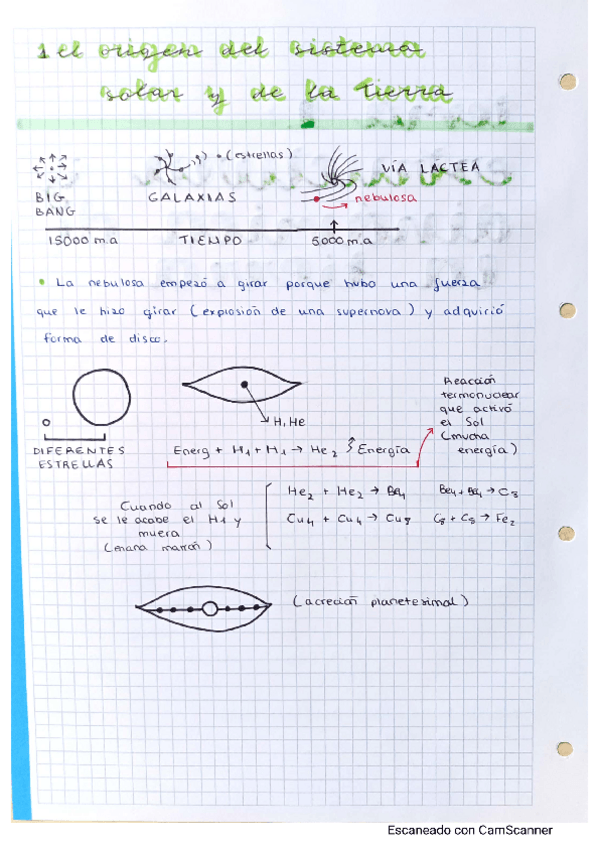 1 el origen del sistema
solar y de la tierra
(estrellas)
VÍA LACTEA
BIG
BANG
GALAXIAS
nebulosa
15000 m.a
TIEMPO
5000 m.a
• La nebulosa empezó a girar porque hubo una fuerza
que le hizo girar (explosión de una supernova) y adquirió
forma de disco.
H, He
DIFERENTES
ESTRELLAS
Energ + H1 + H1 → He2 Energía
Reacción
termonuclear
que activó
el Sol
(mucha
energía)
Cuando al Sol
se le acabe el H1 y
muera
(enana marrón)
He2 + He2 → Be4
Be4 + Be4 → C8
Cu4 + Cu4 → Cu8
C8 + C8 → Fe2
(acreción planetesimal)
Escaneado con CamScanner